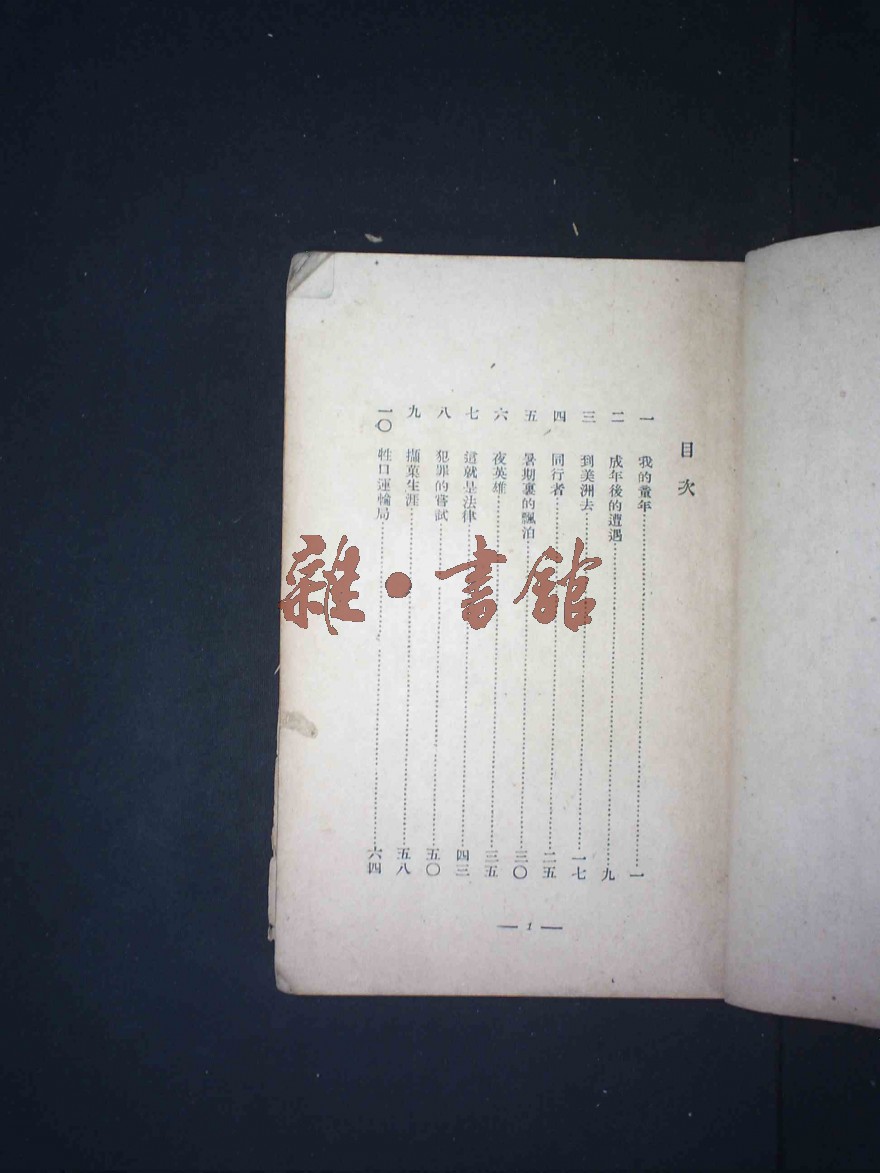 目次
一 我的童年 一
二 成年後的遭遇 九
三 到美洲去 一七
四 同行者 二五
五 暑期裏的飄泊 三〇
六 夜英雄 三五
七 這就是法律 四三
八 犯罪的嘗試 五〇
九 擷菓生涯 五八
一〇 牲口運輸局 六四
— 1 —
雜·書館